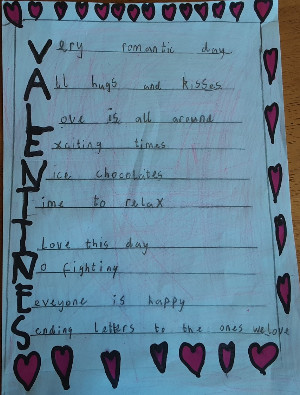 Very romantic day
All hugs and kisses
Love is all around
Exciting times
Nice chocolates
Time to relax
I Love this day
No fighting
Eveyone is happy
Sending letters to the ones we love